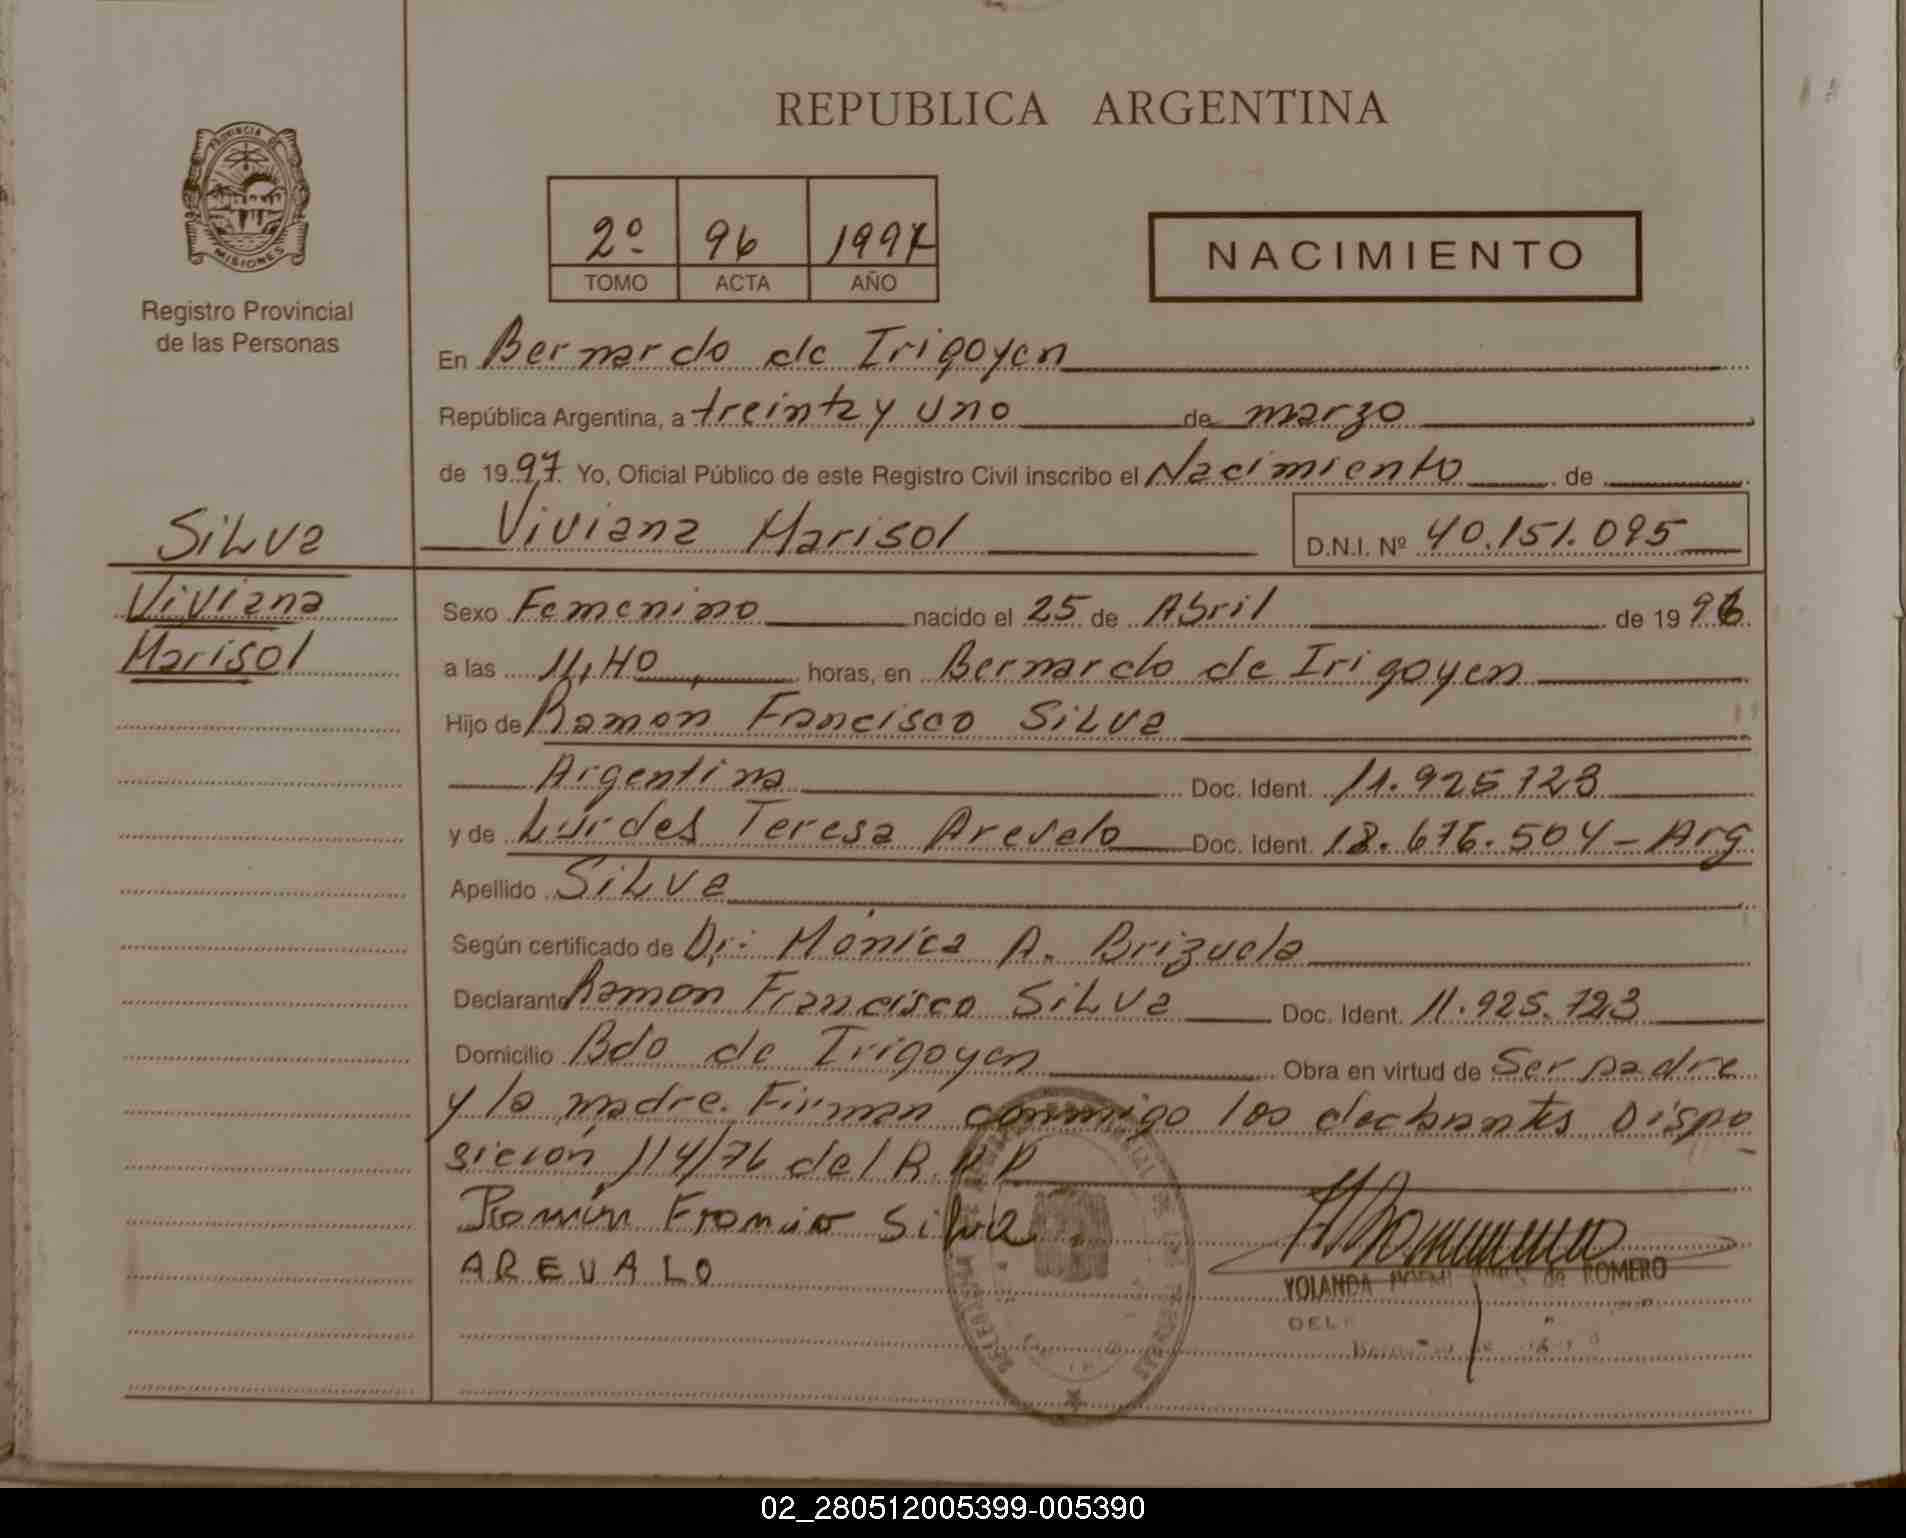 REPUBLICA ARGENTINA
PROVINCIA DE
MISIONES
Registro Provincial
de las Personas
2º 96 1997
TOMO ACTA AÑO
NACIMIENTO
En Bernardo de Irigoyen
República Argentina, a treinta y uno de marzo
de 1997. Yo, Oficial Público de este Registro Civil inscribo el Nacimiento de
Viviana Marisol D.N.I. Nº 40.151.095
Silva
Viviana
Marisol
Sexo Femenino nacido el 25 de Abril de 1996
a las 11,40 horas, en Bernardo de Irigoyen
Hijo de Ramon Francisco Silva
Argentina Doc. Ident. 11.925.723
y de Lurdes Teresa Arevalo Doc. Ident. 18.676.504 - Arg
Apellido Silva
Según certificado de Dr: Mónica A. Brizuela
Declarante Ramon Francisco Silva Doc. Ident. 11.925.723
Domicilio Bdo de Irigoyen Obra en virtud de Ser padre
y la madre. Firman conmigo los declarantes Dispo
sición 114/76 del R.P.P.
Ramón Francisco Silva
AREVALO
YOLANDA de ROMERO
02_280512005399-005390